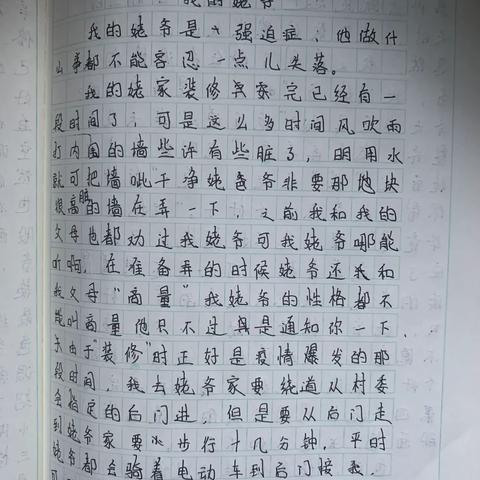 我的姥爷
我的姥爷是个强迫症，他做什
么事都不能容忍一点儿失落。
我的姥家装修完已经有一
段时间了，可是这么多时间风吹雨
打内围的墙些许有些脏了，明用水
就可把墙呲干净姥爷非要那他块
很高的墙在弄一下，之前我和我的
父母也都劝过我姥爷可我姥爷哪能
听啊，在准备弄的时候姥爷还我和
我父母“商量”我姥爷的性格都不
能叫商量他只不过真是通知你一下，
由于“装修”时正好是疫情爆发的那
段时间，我去姥爷家要绕道从村委
会指定的后门进，但是要从后门走
到姥爷家要步行十几分钟，平时
姥爷都会骑着电动车到后门接我，